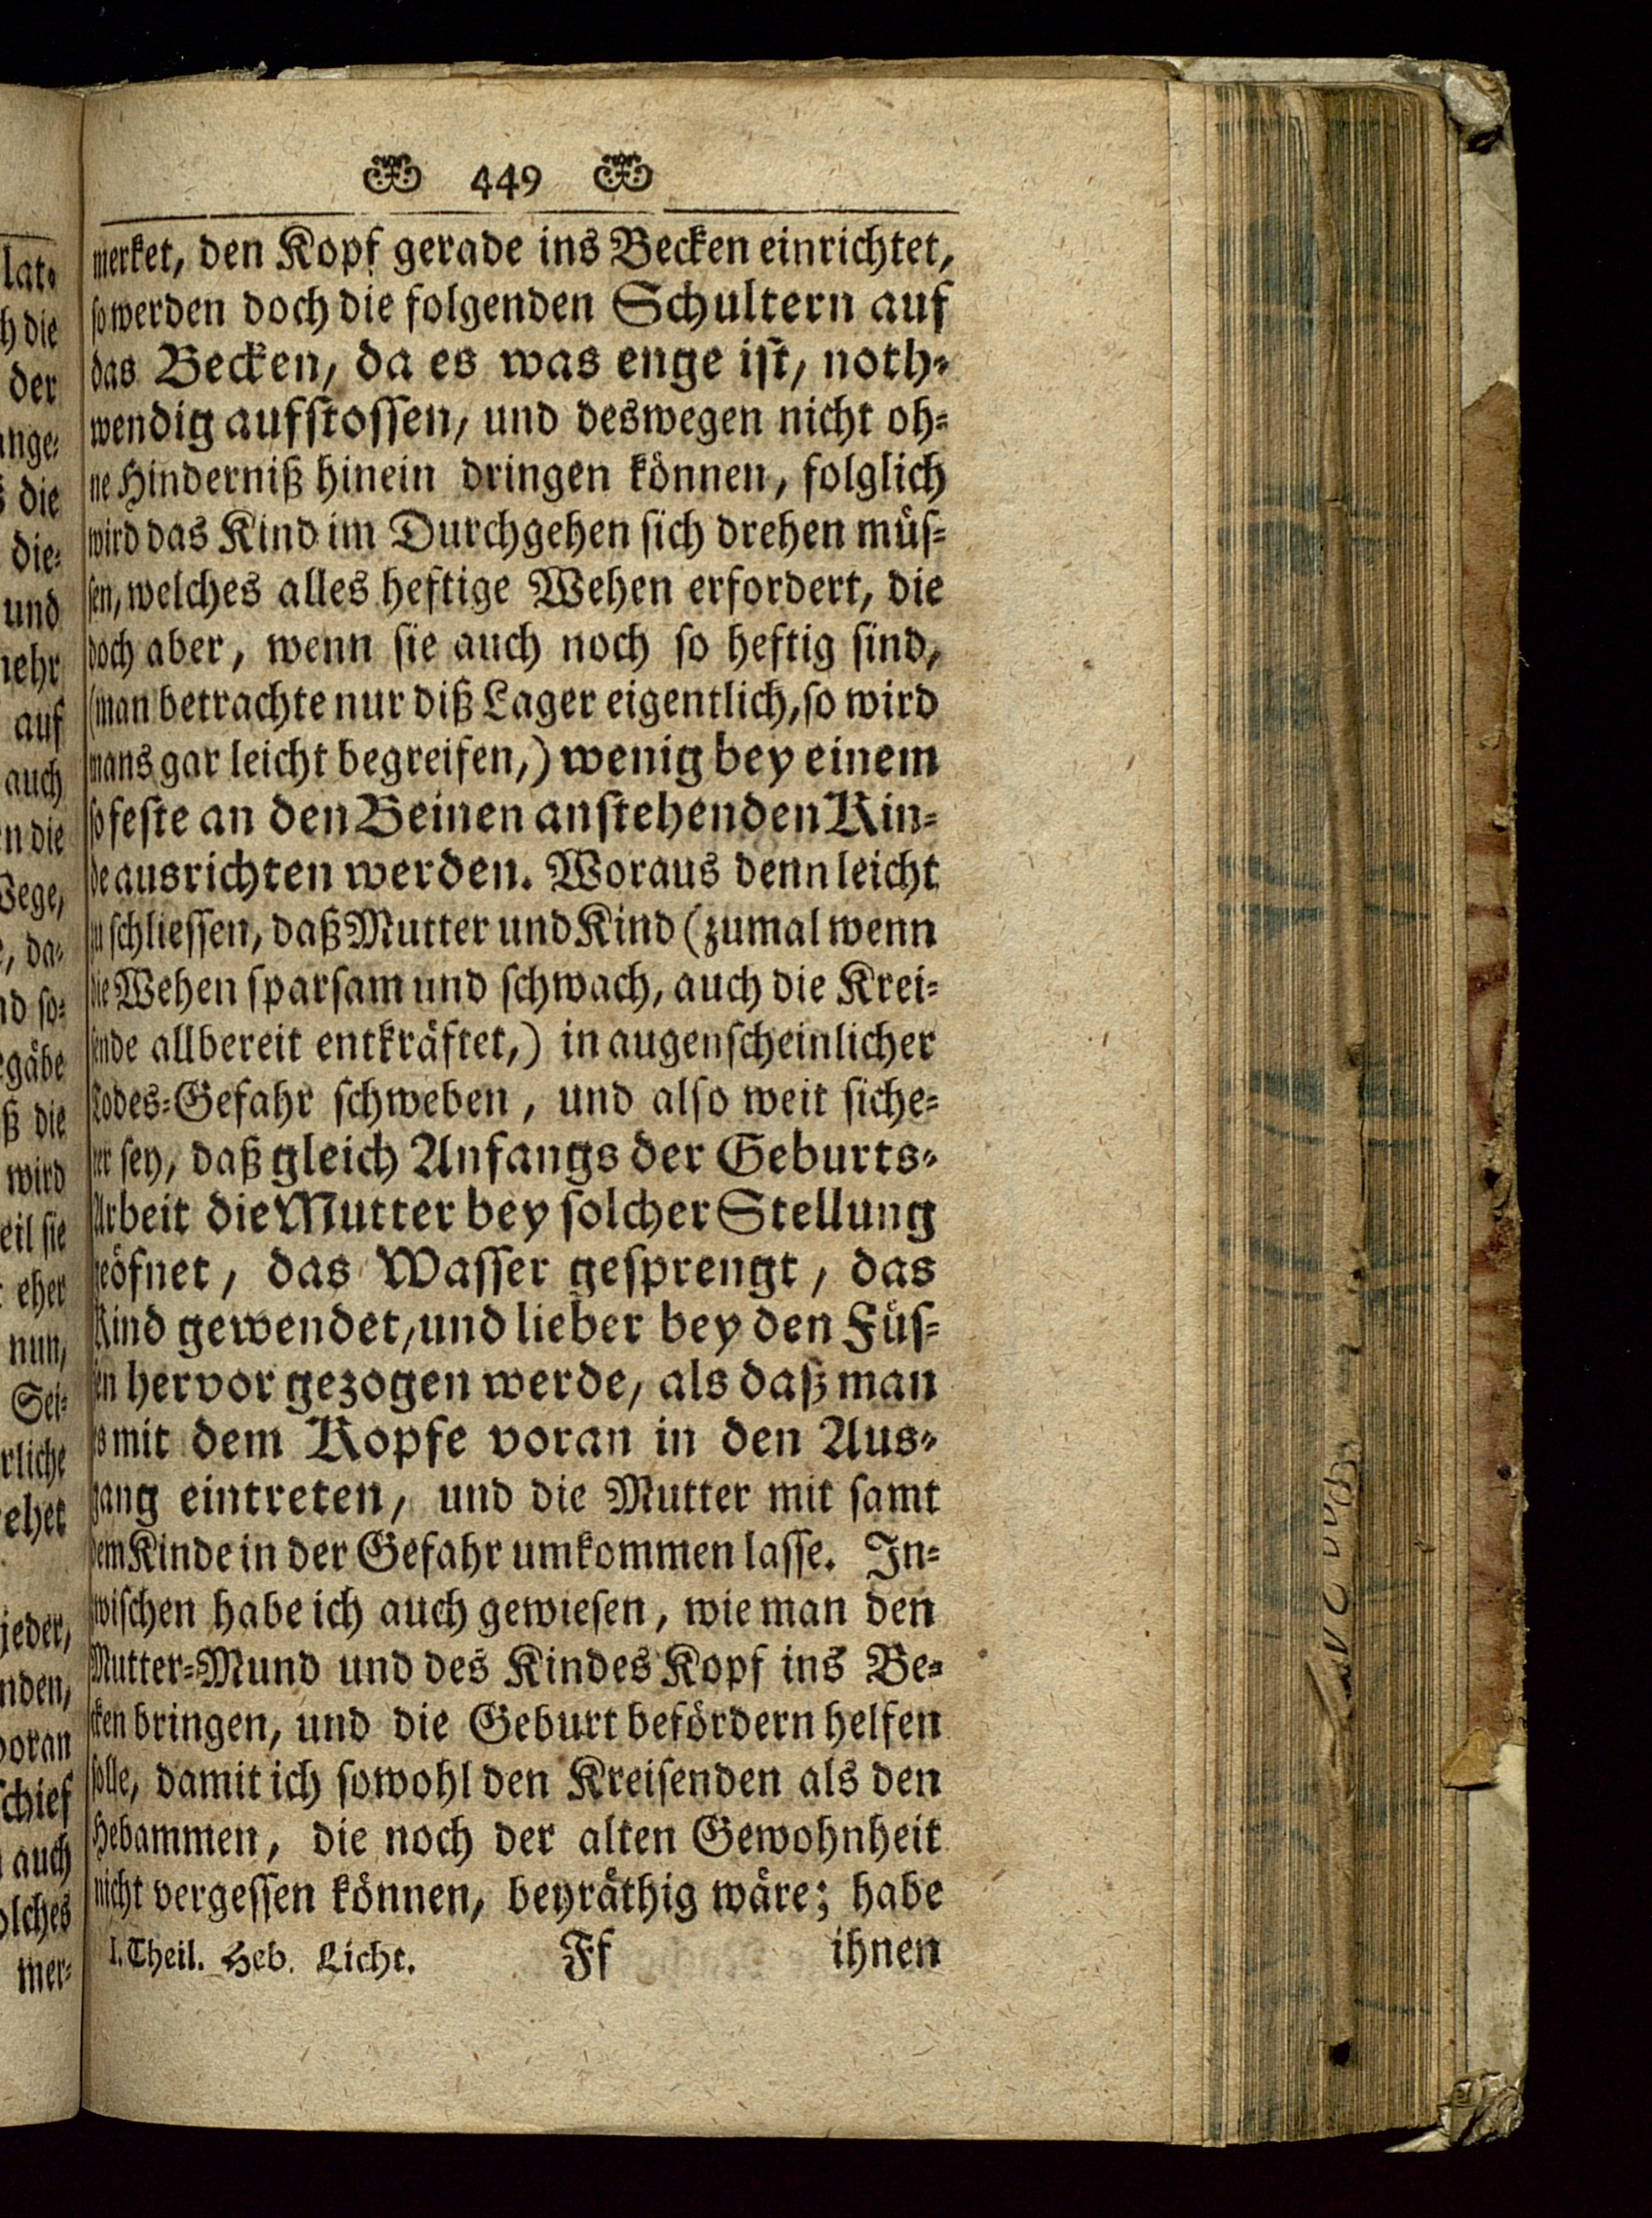 449
merket, den Kopf gerade ins Becken einrichtet,
so werden doch die folgenden Schultern auf
das Becken, da es was enge ist, noth-
wendig aufstossen, und deswegen nicht oh-
ne Hinderniß hinein dringen können, folglich
wird das Kind im Durchgehen sich drehen müs-
sen, welches alles heftige Wehen erfordert, die
doch aber, wenn sie auch noch so heftig sind,
(man betrachte nur diß Lager eigentlich, so wird
mans gar leicht begreifen,) wenig bey einem
so feste an den Beinen anstehenden Kin-
de ausrichten werden. Woraus denn leicht
zu schliessen, daß Mutter und Kind (zumal wenn
die Wehen sparsam und schwach, auch die Krei-
sende allbereit entkräftet,) in augenscheinlicher
Todes-Gefahr schweben, und also weit siche-
rer sey, daß gleich Anfangs der Geburts-
Arbeit die Mutter bey solcher Stellung
geöfnet, das Wasser gesprengt, das
Kind gewendet, und lieber bey den Füs-
sen hervor gezogen werde, als daß man
es mit dem Kopfe voran in den Aus-
gang eintreten, und die Mutter mit samt
dem Kinde in der Gefahr umkommen lasse. In-
zwischen habe ich auch gewiesen, wie man den
Mutter-Mund und des Kindes Kopf ins Be-
cken bringen, und die Geburt befördern helfen
solle, damit ich sowohl den Kreisenden als den
Hebammen, die noch der alten Gewohnheit
nicht vergessen können, beyräthig wäre; habe
I. Theil. Heb. Licht. Ff ihnen